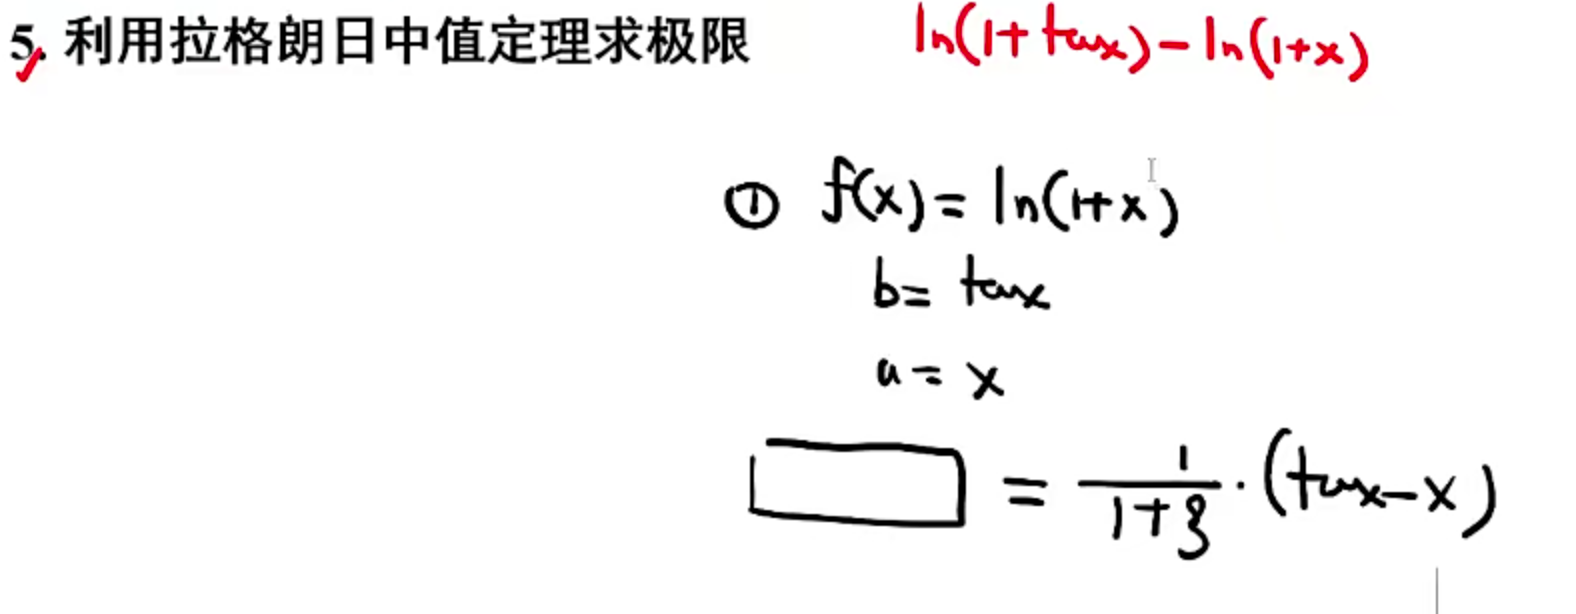 5. 利用拉格朗日中值定理求极限 ln(1+tanx)-ln(1+x)
① f(x)=ln(1+x)
b=tanx
a=x
= 1/(1+ξ)·(tanx-x)